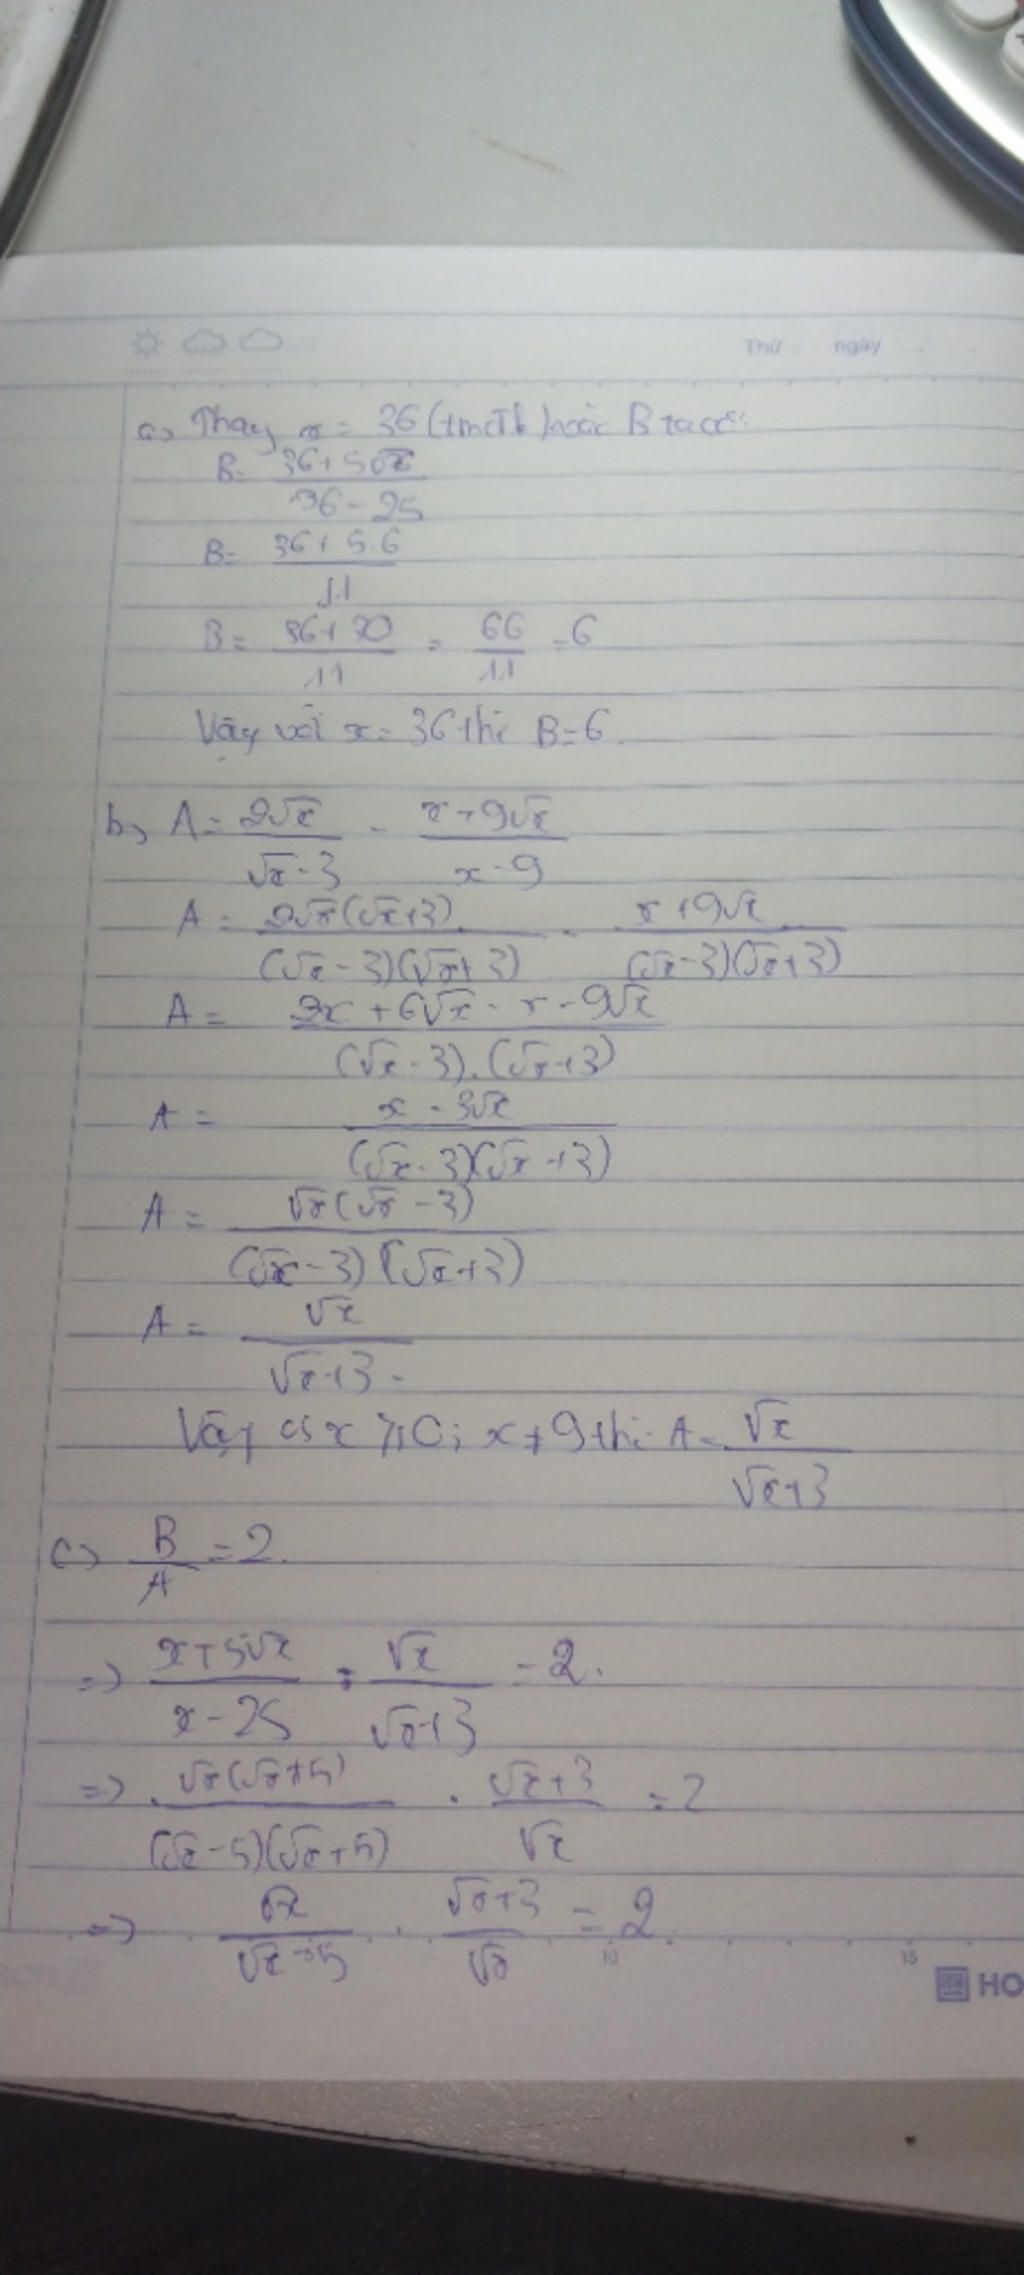 Thứ ngày
a, Thay x = 36 (tmđk) vào B ta có:
B = (36+5√x)/(36-25)
B = (36+5.6)/11
B = (36+30)/11 = 66/11 = 6
Vậy với x = 36 thì B = 6.
b, A = 2√x/(√x-3) - (x+9√x)/(x-9)
A = 2√x(√x+3)/(√x-3)(√x+3) - (x+9√x)/(√x-3)(√x+3)
A = (2x+6√x-x-9√x)/(√x-3).(√x+3)
A = (x-3√x)/(√x-3)(√x+3)
A = √x(√x-3)/(√x-3)(√x+3)
A = √x/(√x+3)
Vậy x ≥ 0; x ≠ 9 thì A = √x/(√x+3)
c, B/A = 2
=> (x+5√x)/(x-25) : √x/(√x+3) = 2.
=> √x(√x+5)/(√x-5)(√x+5) . (√x+3)/√x = 2
=> √x/(√x-5) . (√x+3)/√x = 2
10 15
HO